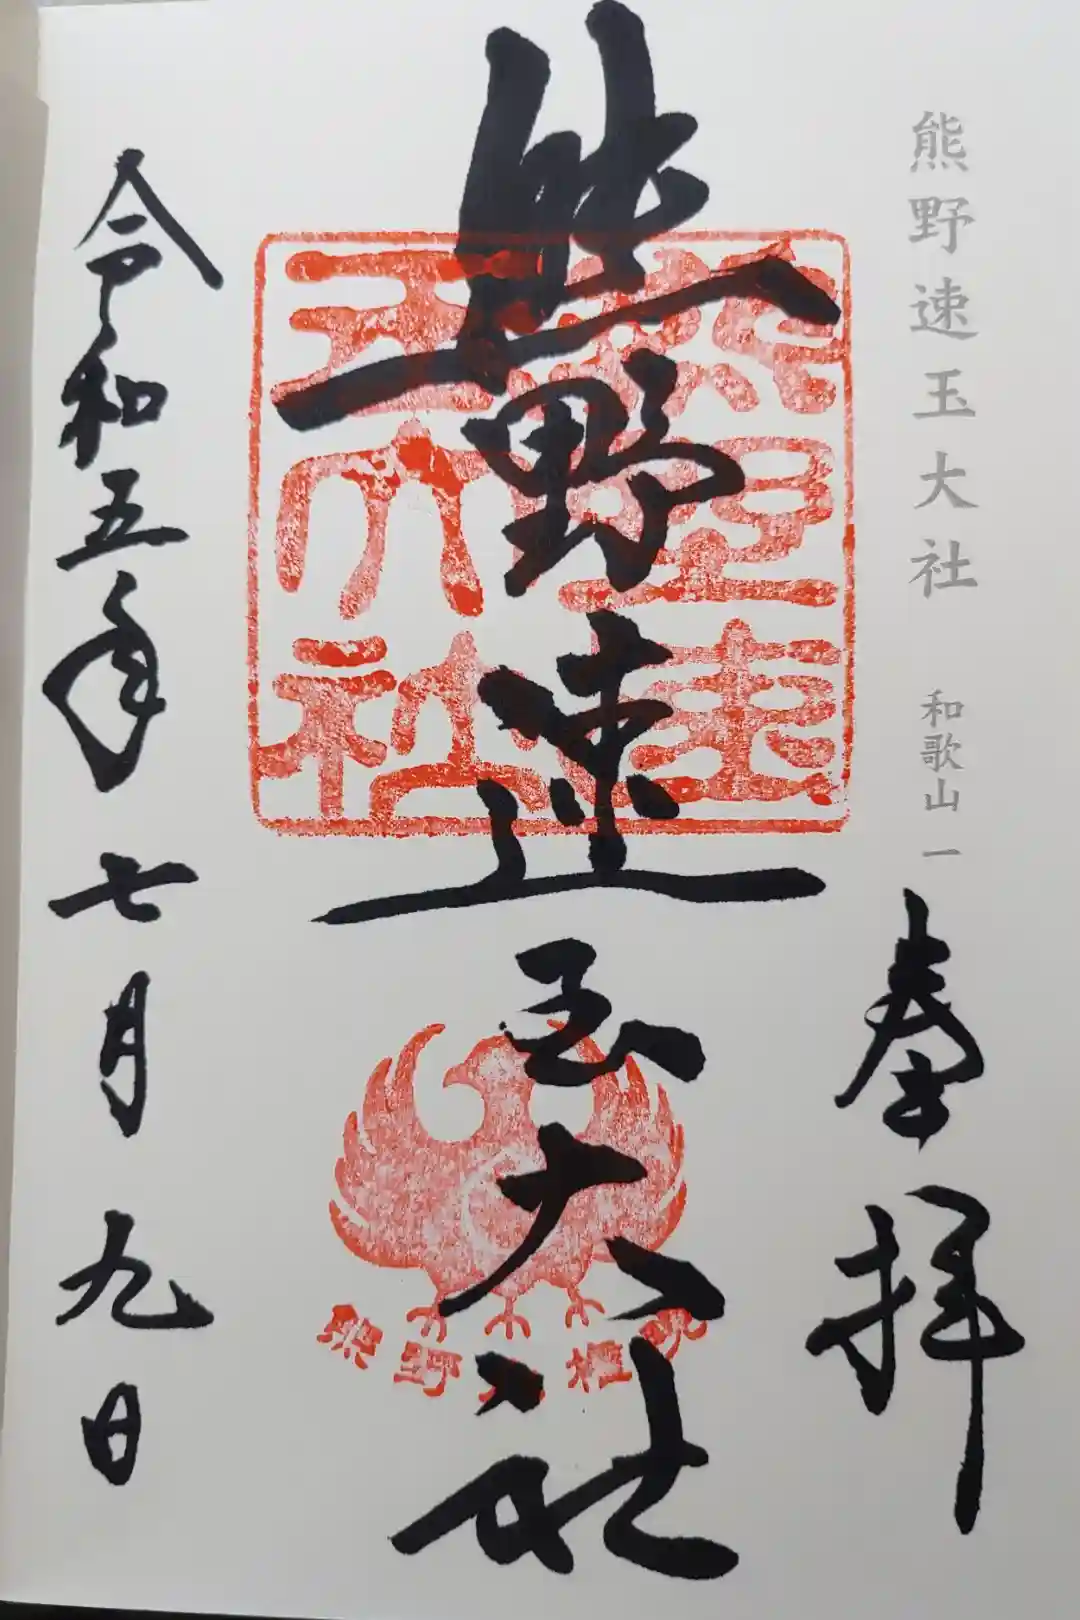 熊野速玉大社 和歌山一
奉拝
熊野速玉大社
熊野速
玉大社
熊野大権現
令和五年七月九日